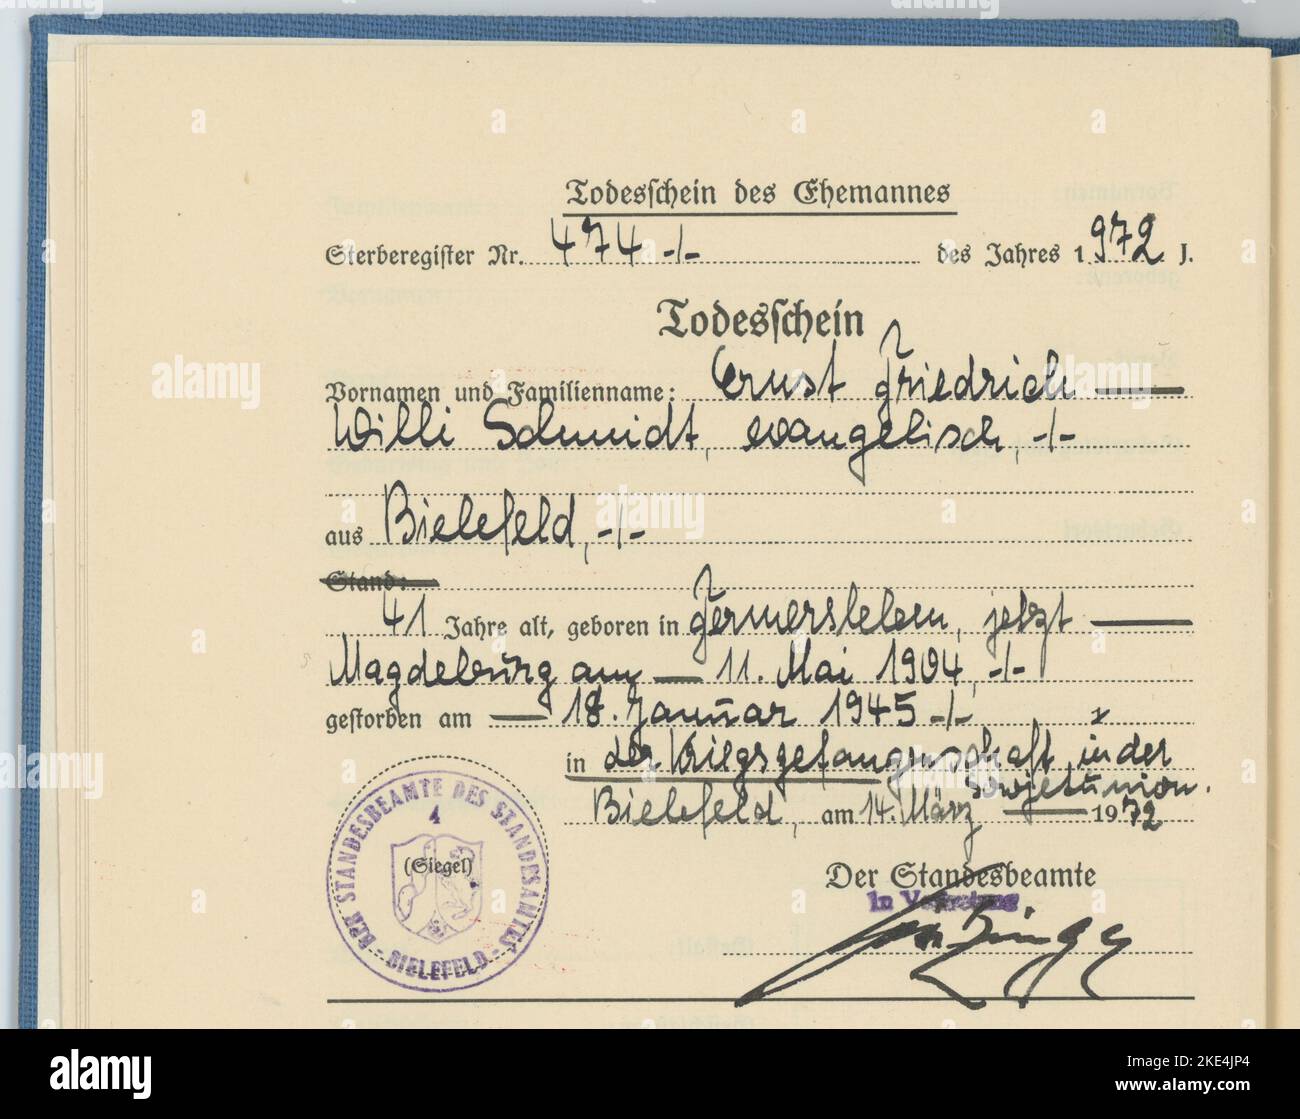 Todesschein des Ehemannes
Sterberegister Nr. 474 -/- des Jahres 1972 J.
Todesschein
Vornamen und Familienname: Ernst Friedrich —
Willi Schmidt, evangelisch, -/-
aus Bielefeld, -/-
Stand:
41 Jahre alt, geboren in Fermersleben, jetzt —
Magdeburg am — 11. Mai 1904, -/-
gestorben am — 18. Januar 1945 -/-
in der Kriegsgefangenschaft in der
Sowjetunion.
Bielefeld, am 14. März — 1972
DER STANDESBEAMTE DES STANDESAMTES
4
(Siegel)
- BIELEFELD -
Der Standesbeamte
In Vertretung
alamy
Image ID: 2KE4JP4
www.alamy.com